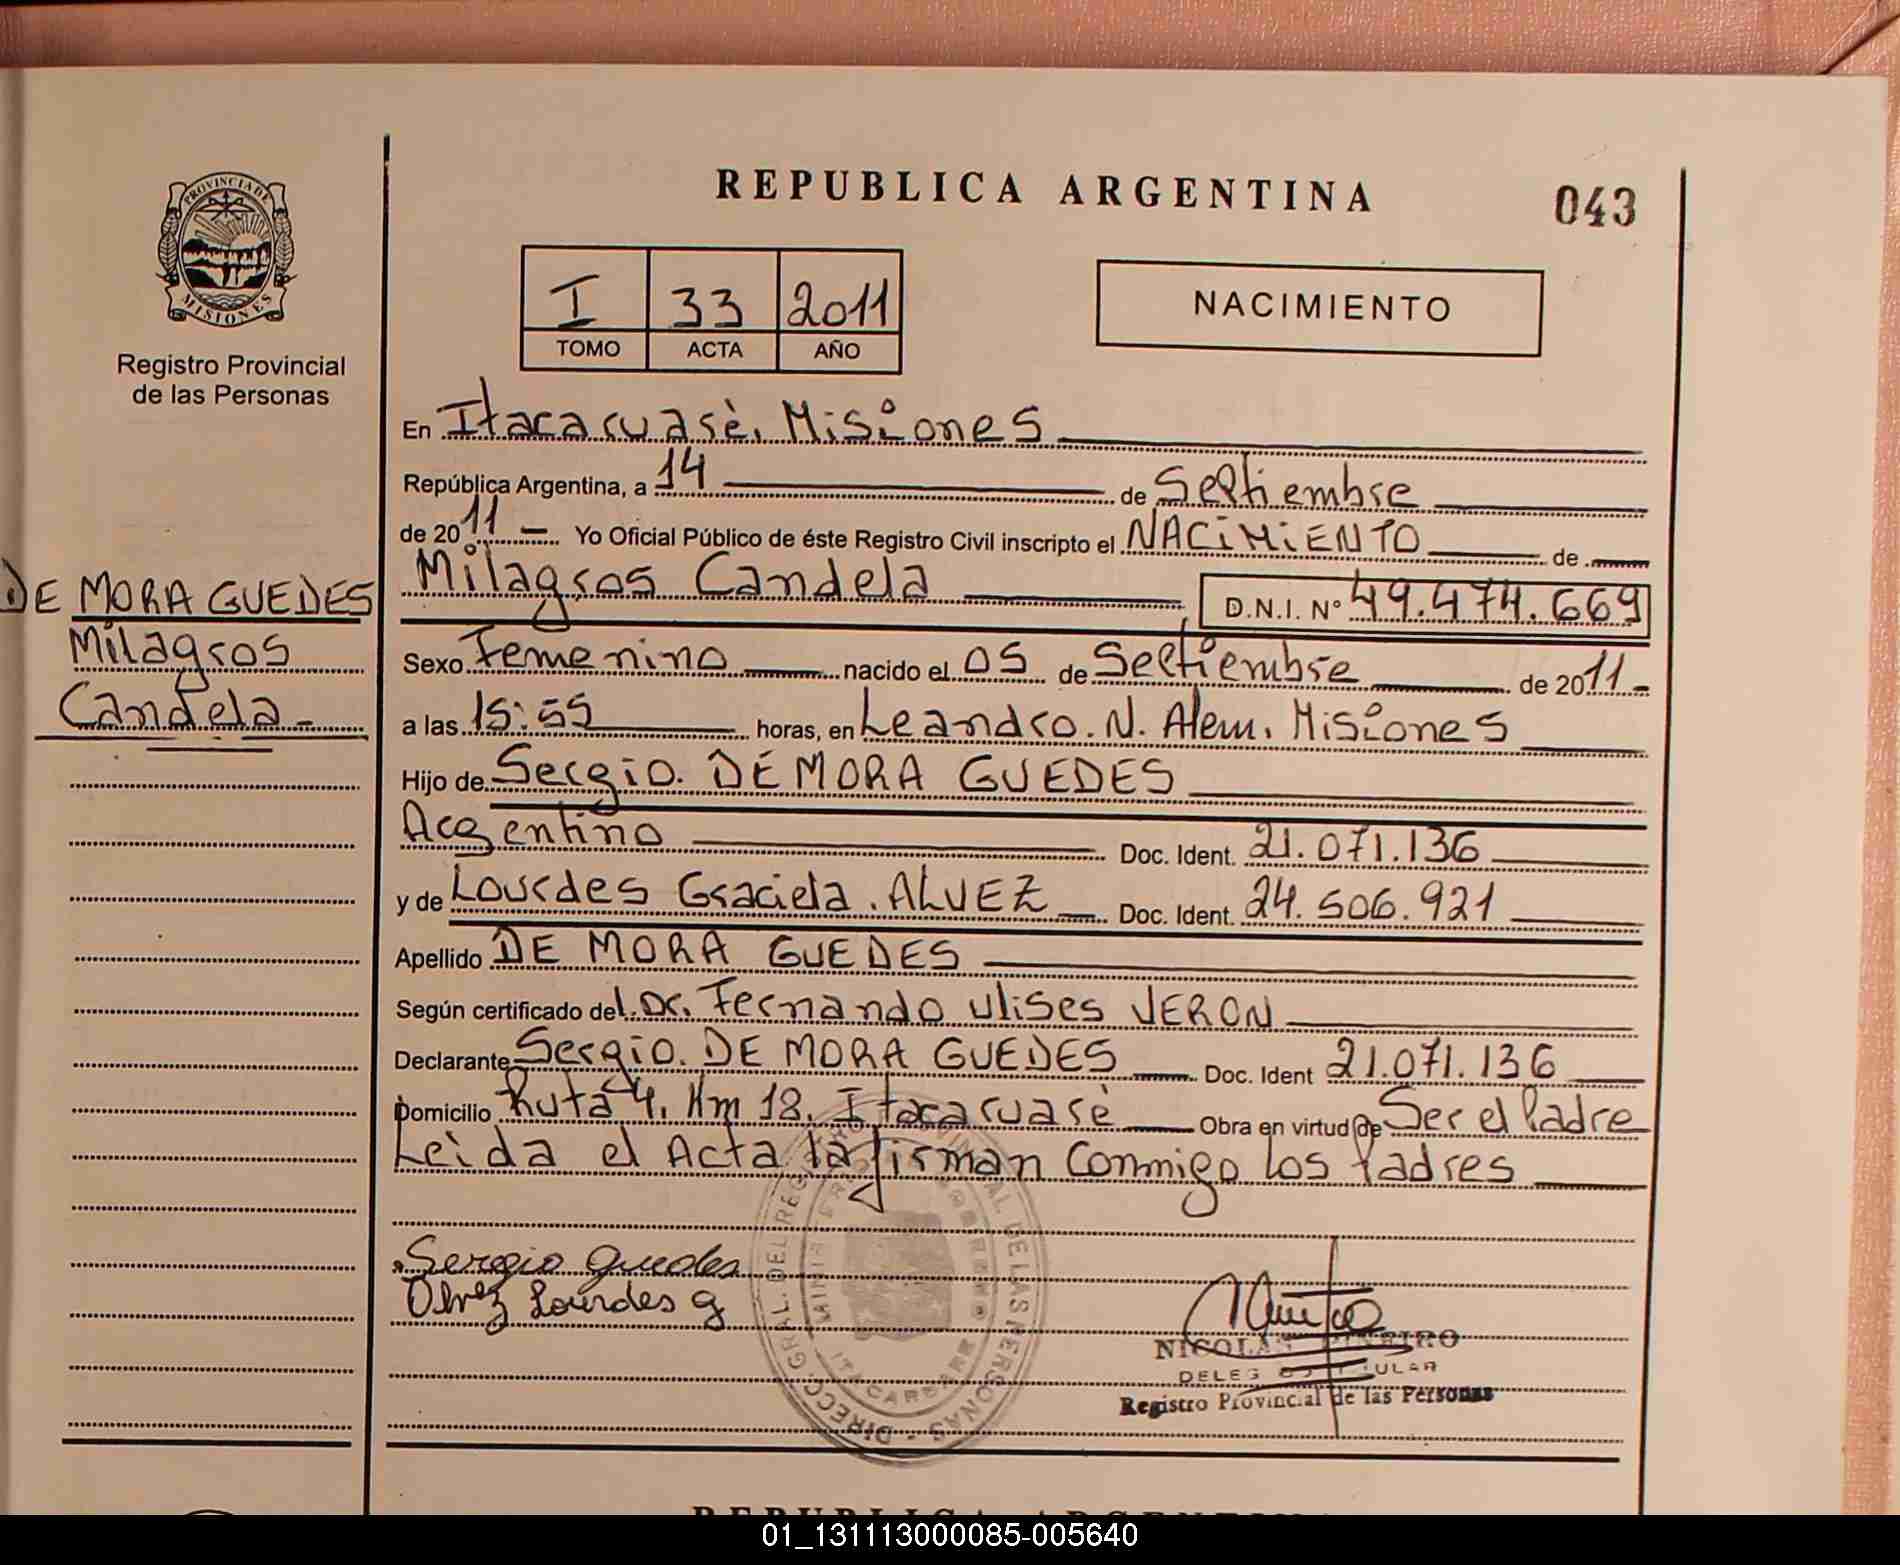 REPUBLICA ARGENTINA
043
PROVINCIA DE MISIONES
Registro Provincial
de las Personas
I 33 2011
TOMO ACTA AÑO
NACIMIENTO
En Itacaruasè. Misiones
República Argentina, a 14 de Septiembre
de 2011 Yo Oficial Público de éste Registro Civil inscripto el NACIMIENTO de
Milagros Candela D.N.I. Nº 49.474.669
DE MORA GUEDES
Milagros
Candela
Sexo Femenino nacido el 05 de Septiembre de 2011
a las 15:55 horas, en Leandro. N. Alem. Misiones
Hijo de Sergio. DE MORA GUEDES
Argentino Doc. Ident. 21.071.136
y de Lourdes Graciela. ALVEZ Doc. Ident. 24.506.921
Apellido DE MORA GUEDES
Según certificado del Dr. Fernando Ulises VERON
Declarante Sergio. DE MORA GUEDES Doc. Ident 21.071.136
Domicilio Ruta 4. Km 18. Itacaruasè Obra en virtud de Ser el Padre
Leida el Acta la firman Conmigo los Padres
Sergio Guedes
Lourdes g
NICOLAS PINEIRO
Registro Provincial de las Personas
DIRECC. GRAL. DEL REGISTRO PROVINCIAL DE LAS PERSONAS
REPUBLICA ARGENTINA
01_131113000085-005640